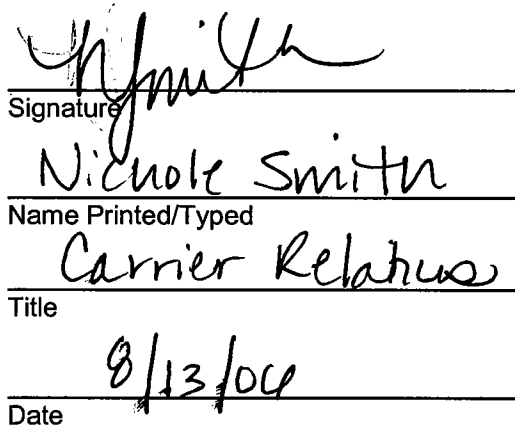 NSmith
Signature
Nichole Smith
Name Printed/Typed
Carrier Relations
Title
8/13/04
Date